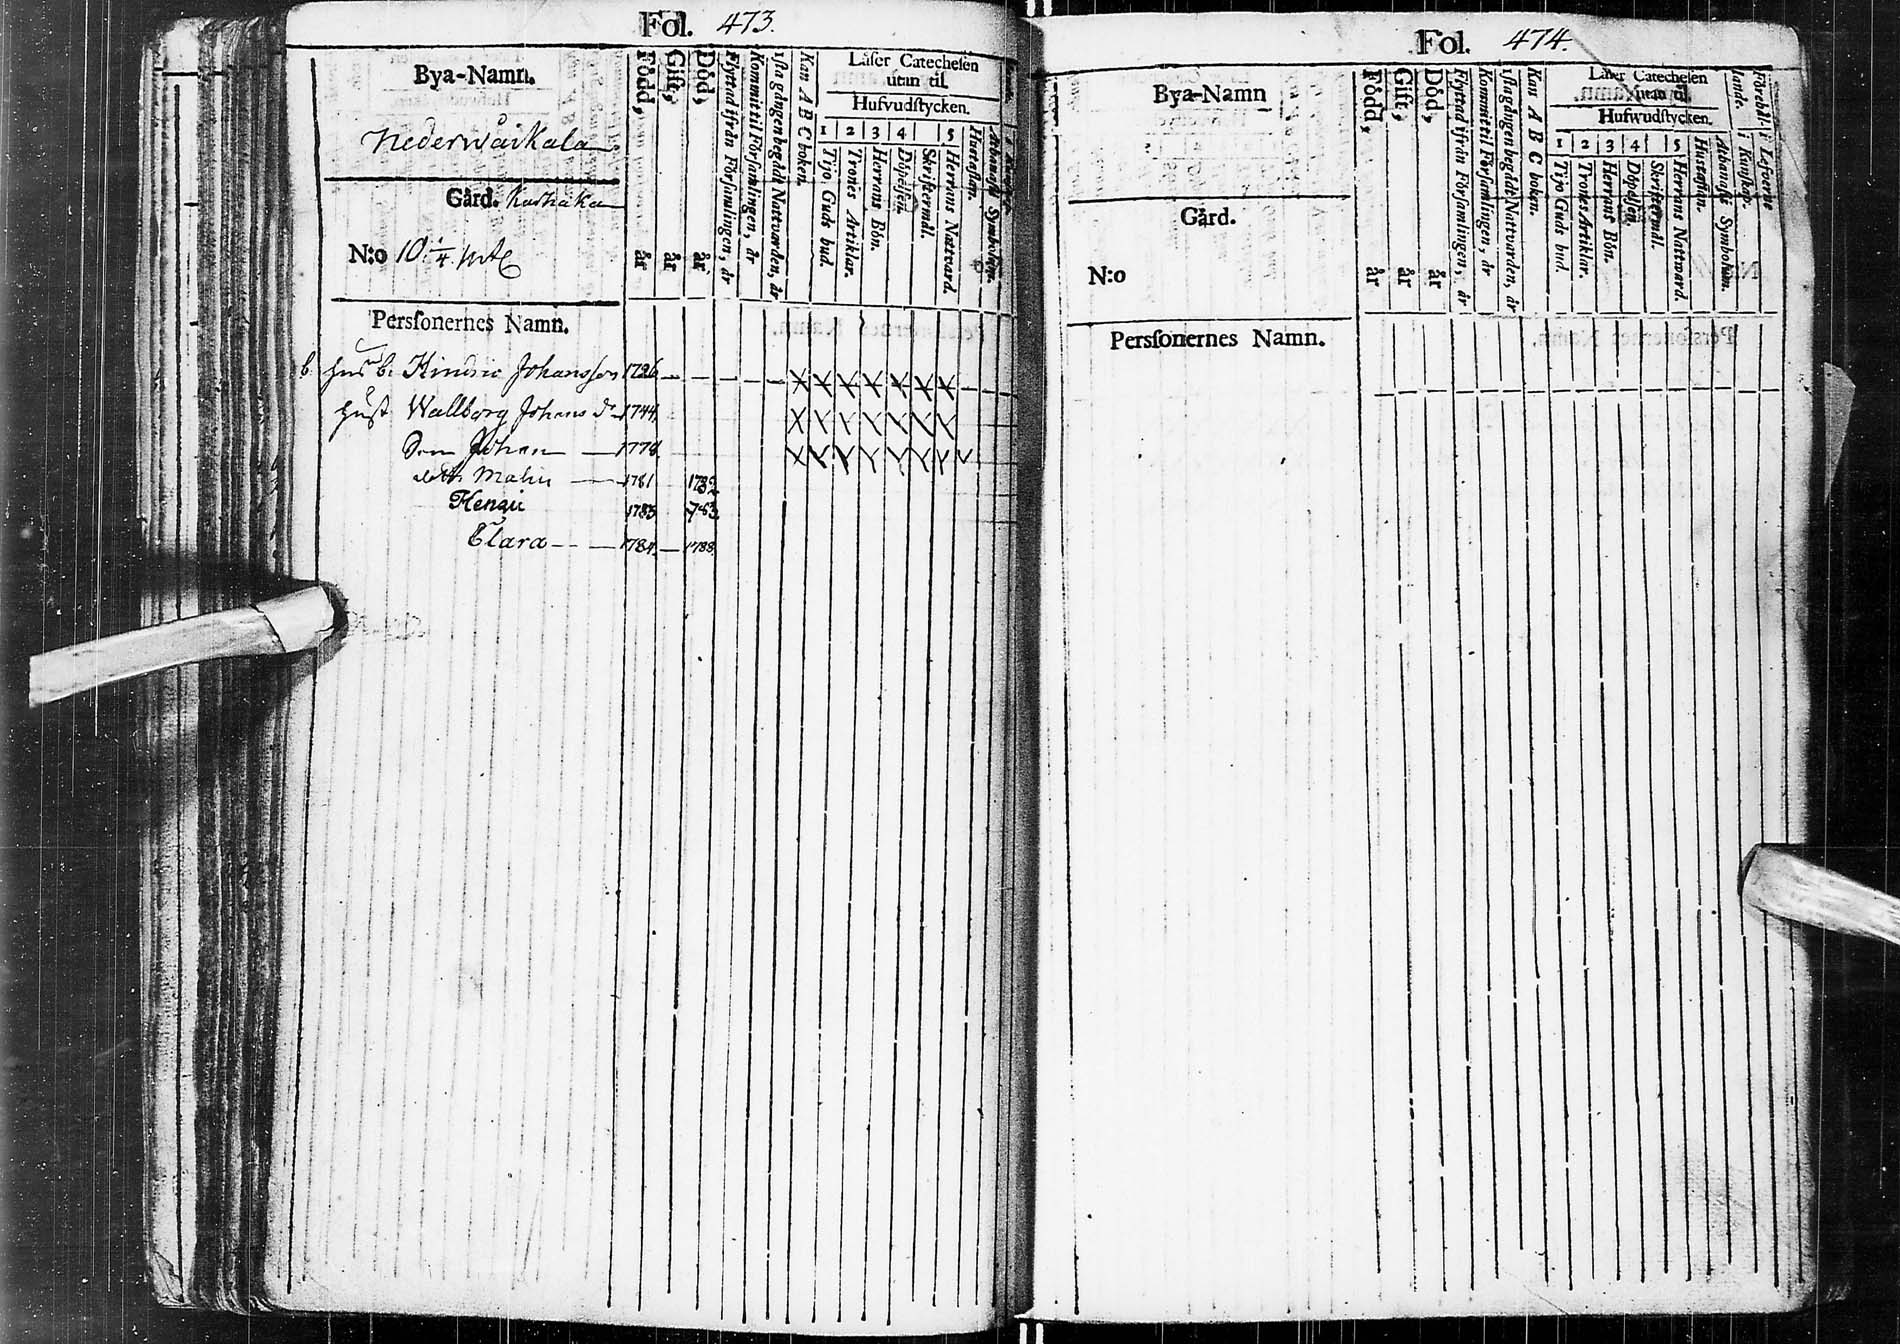 Fol. 473.
Bya-Namn.
Nederwäikala
Gård.
N:o 10. 1/4. mtl
Personernes Namn.
Född, år
Gift, år
Död, år
Flyttad ifrån Församlingen, år
Kommit til Församlingen, år
Kan A B C boken.
Läser Catechesen
utan til.
Hufvudstycken.
1 2 3 4 5
Tijo Guds bud.
Trones Artiklar.
Herrans Bön.
Döpelsen.
Skriftermål.
Herrans Nattvard.
Hustaflan.
Athanasii Symbolum.
b. Hindric Johansson 1726
Hust Wallborg Johans dr 1744
Son Johan 1778
dott. Malin 1781 1782
Henric 1783 783
Clara 1784 1788
Fol. 474.
Bya-Namn
Gård.
N:o
Personernes Namn.
Född, år
Gift, år
Död, år
Flyttad ifrån Församlingen, år
Kommit til Församlingen, år
1sta gången begådt Nattvarden, år
Kan A B C boken.
Läser Catechesen
utan til.
Hufwudstycken.
1 2 3 4 5
Tijo Guds bud.
Trones Artiklar.
Herrans Bön.
Döpelsen.
Skriftermål.
Herrans Nattward.
Hustaflan.
Athanasii Symbolum.